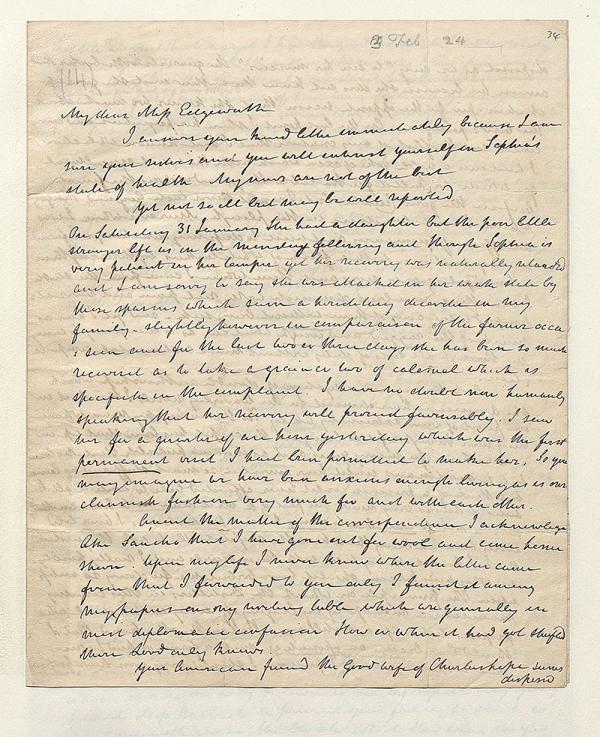 3 Feb 24
34
My dear Miss Edgeworth
I answer your kind letter immediately because I am
sure your sisters and you will interest yourself in Sophia's
state of health My news are not of the best
Yet not so ill but may be well reported
On Saturday 31 January she had a daughter but the poor little
stranger left us on the monday following and though Sophia is
very patient in her temper yet her recovery was naturally retarded
and I am sorry to say she was attacked in her weak state by
those spasms which seem a hereditary disorder in my
family. slightly however in comparaison of the former occa
: sion and for the last two or three days she has been so much
recovered as to take a grain or two of calomel which is
specifick in the complaint. I have no doubt now humanly
speaking that her recovery will proceed favourably. I saw
her for a quarter of an hour yesterday which was the first
permanent visit I had been permitted to make her. So you
may imagine we have been anxious enough living as is our
clannish fashion very much for and with each other.
Anent the matter of the correspondence I acknowledge
like Sancho that I have gone out for wool and come home
shorn. Upon my life I never knew where the letter came
from that I forwarded to you only I found it among
my papers on my writing table which are generally in
most diplomatic confusion How or when it had got shuffled
there Lord only knows
Your American friend the Good wife of Charleshope seems
disposed